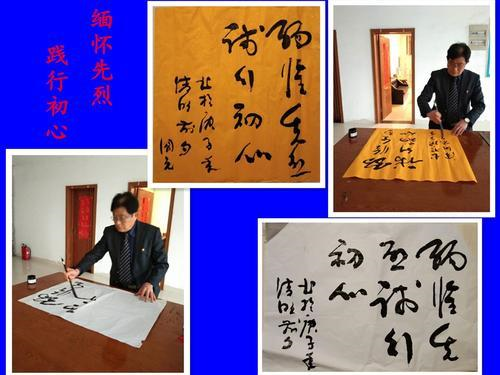 缅怀先烈
践行初心
缅怀先烈
践行初心
书于庚子年
清明前夕
缅怀先
烈践行
初心
书于庚子年
清明前夕